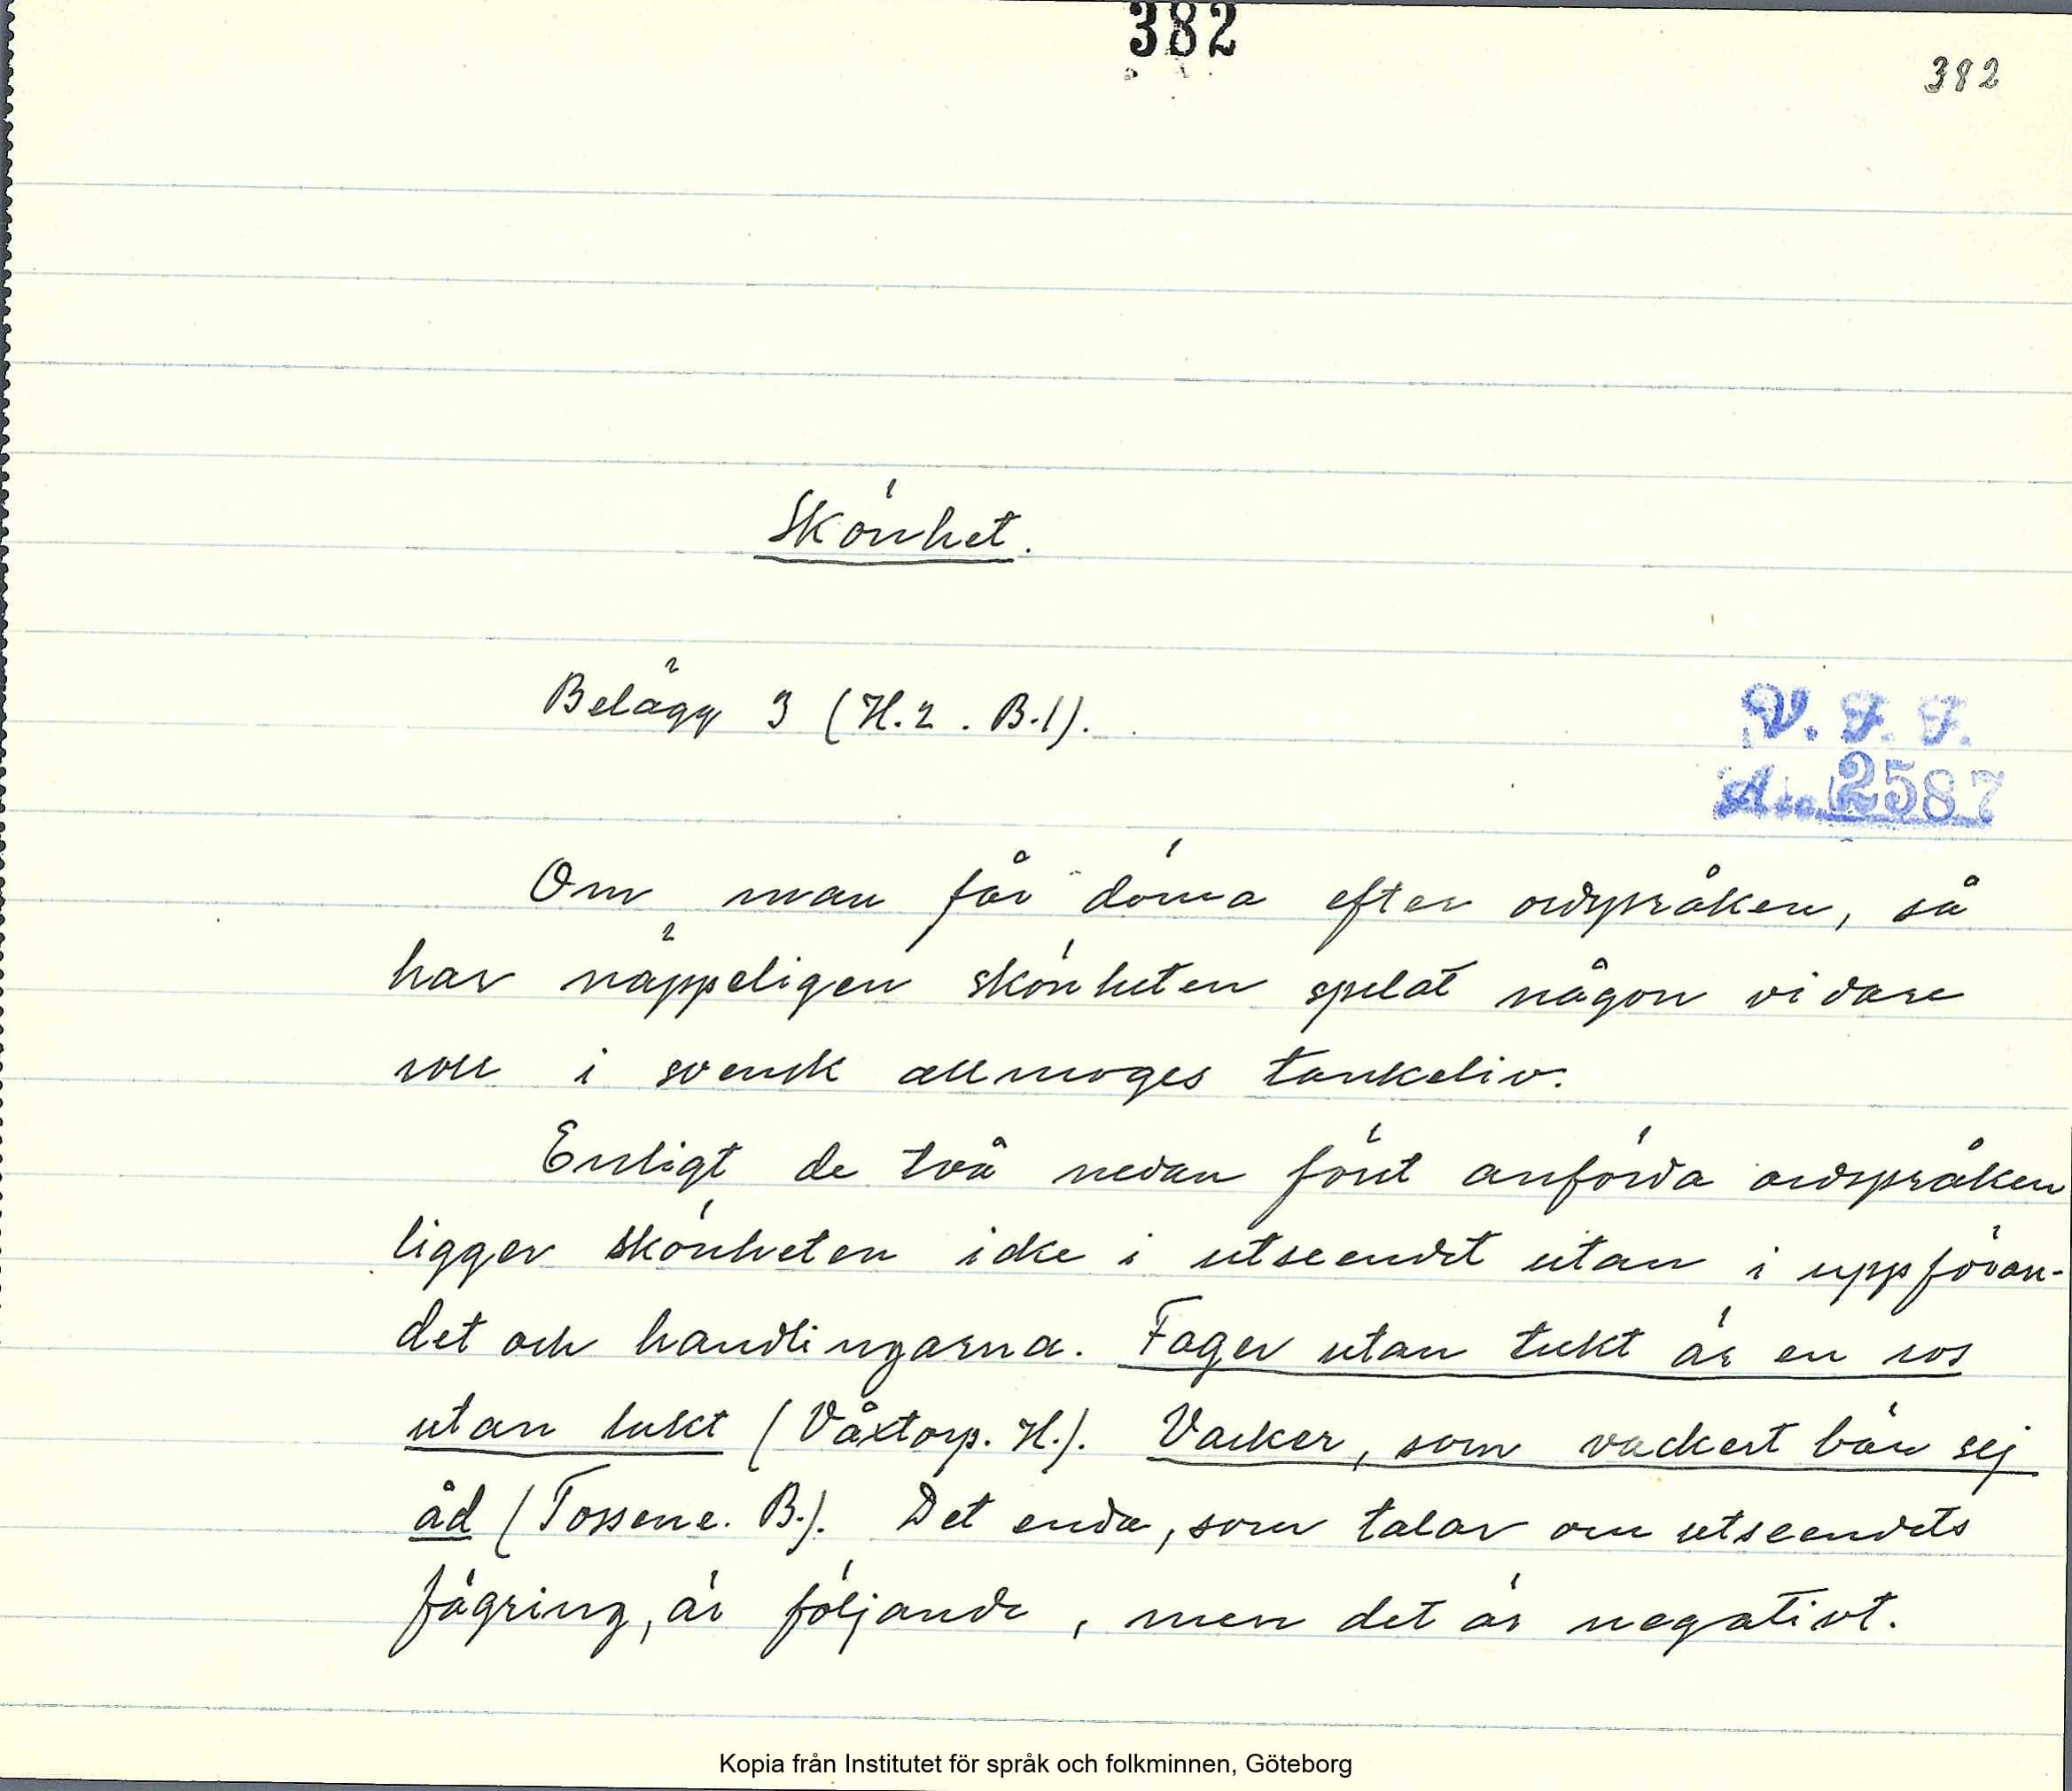 382
382
Skönhet.
Belägg 3 (H.2. B.1).
V. F. F.
Acc. 2587
Om man får döma efter ordspråken, så
har näppeligen skönheten spelat någon vidare
roll i svensk allmoges tankeliv.
Enligt de två nedan först anförda ordspråken
ligger skönheten icke i utseendet utan i uppföran-
det och handlingarna. Fager utan tukt är en ros
utan lukt (Våxtorp. H.). Vacker, som vackert bär sej
åd (Tossene. B.). Det enda, som talar om utseendets
fägring, är följande, men det är negativt.
Kopia från Institutet för språk och folkminnen, Göteborg